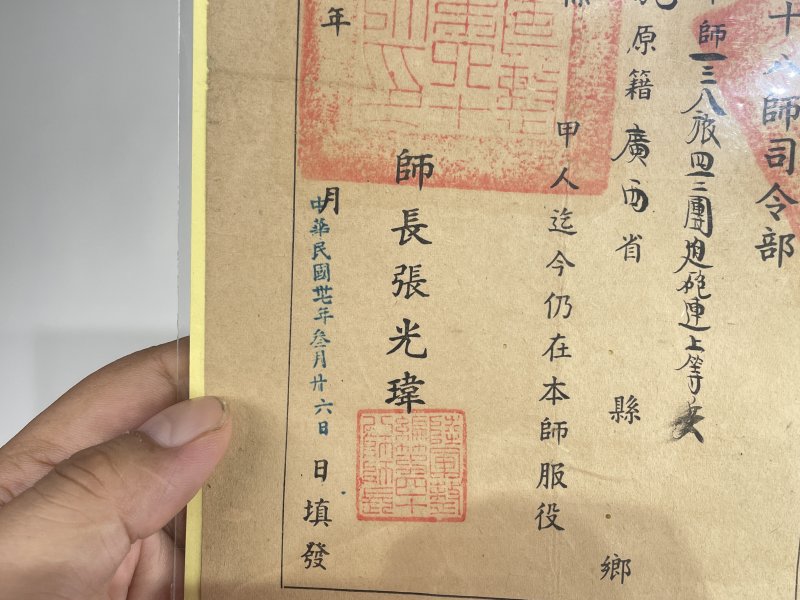 十八師司令部
師一三八旅四一三團迫砲連上等兵
原籍廣西省 縣 鄉
甲人迄今仍在本師服役
師長張光瑋
陸軍整編第四十八師師長
年 月 日填發
中華民國卅七年叁月廿六日